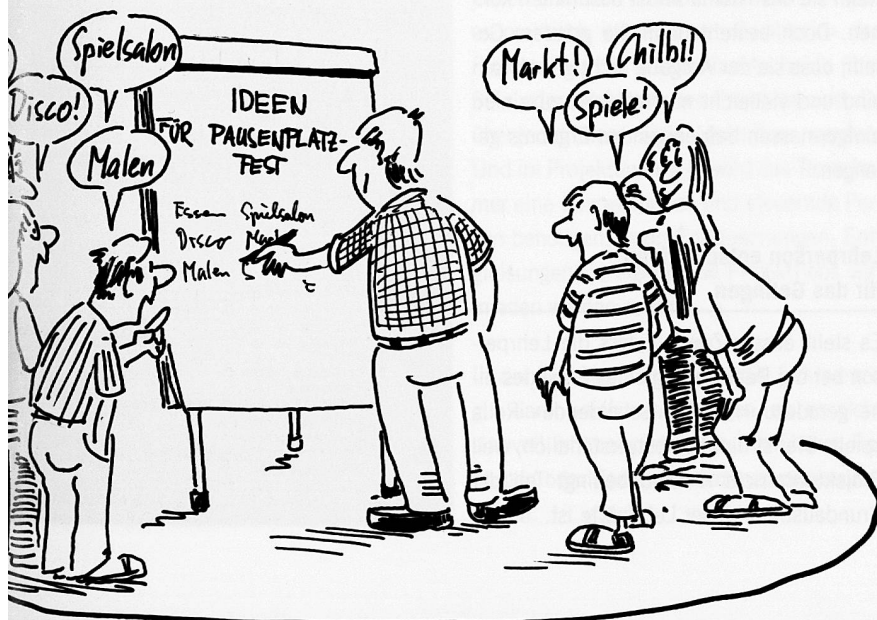 Spielsalon
Disco!
Malen
IDEEN
FÜR PAUSENPLATZ-
FEST
Essen Spielsalon
Disco Markt
Malen S
Markt!
Chilbi!
Spiele!